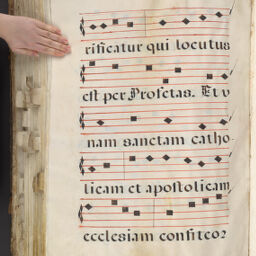 rificatur qui locutus
est per Profetas. Et v
nam sanctam catho
licam et apostolicam
ecclesiam confiteor